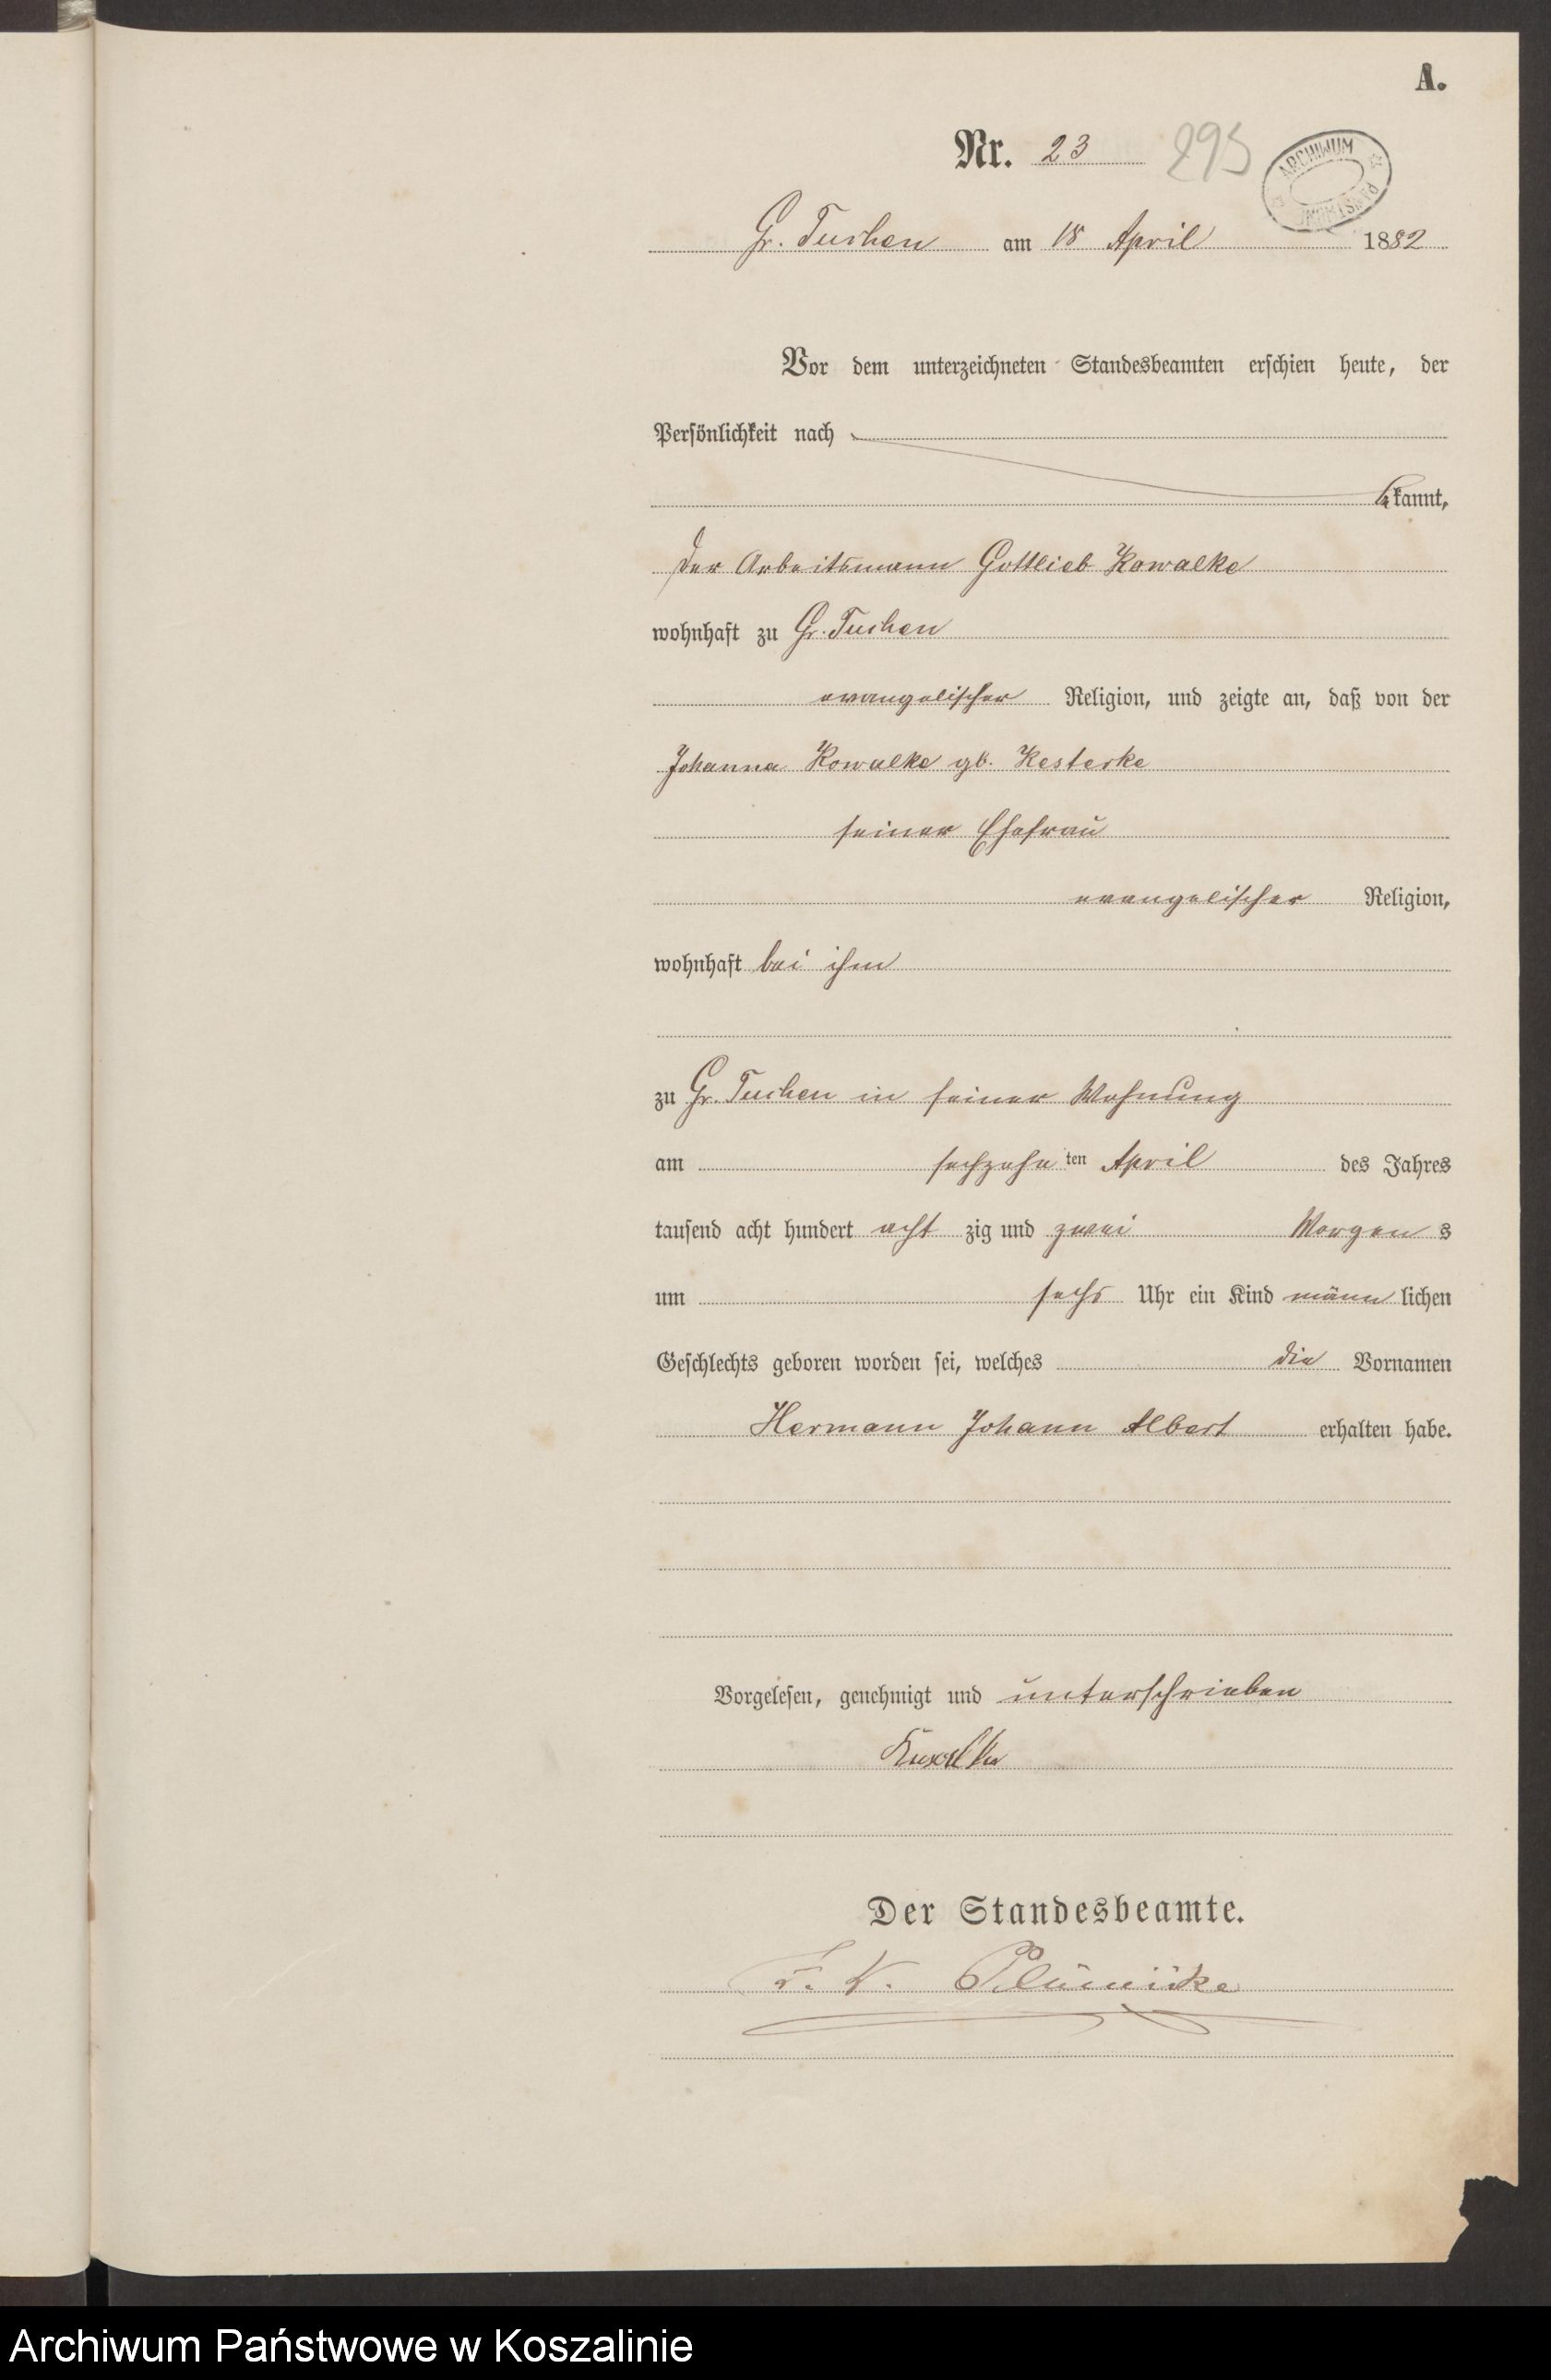 A.
Nr. 23 295
ARCHIWUM PAŃSTWOWE
Gr. Tuchen am 18 April 1882
Vor dem unterzeichneten Standesbeamten erschien heute, der
Persönlichkeit nach
bekannt,
der Arbeitsmann Gottlieb Kowalke
wohnhaft zu Gr. Tuchen
evangelischer Religion, und zeigte an, daß von der
Johanna Kowalke gb. Kesterke
seiner Ehefrau
evangelischer Religion,
wohnhaft bei ihm
zu Gr. Tuchen in seiner Wohnung
am sechzehn ten April des Jahres
tausend acht hundert acht zig und zwei Morgen s
um sechs Uhr ein Kind männ lichen
Geschlechts geboren worden sei, welches die Vornamen
Hermann Johann Albert erhalten habe.
Vorgelesen, genehmigt und unterschrieben
Der Standesbeamte.
Archiwum Państwowe w Koszalinie